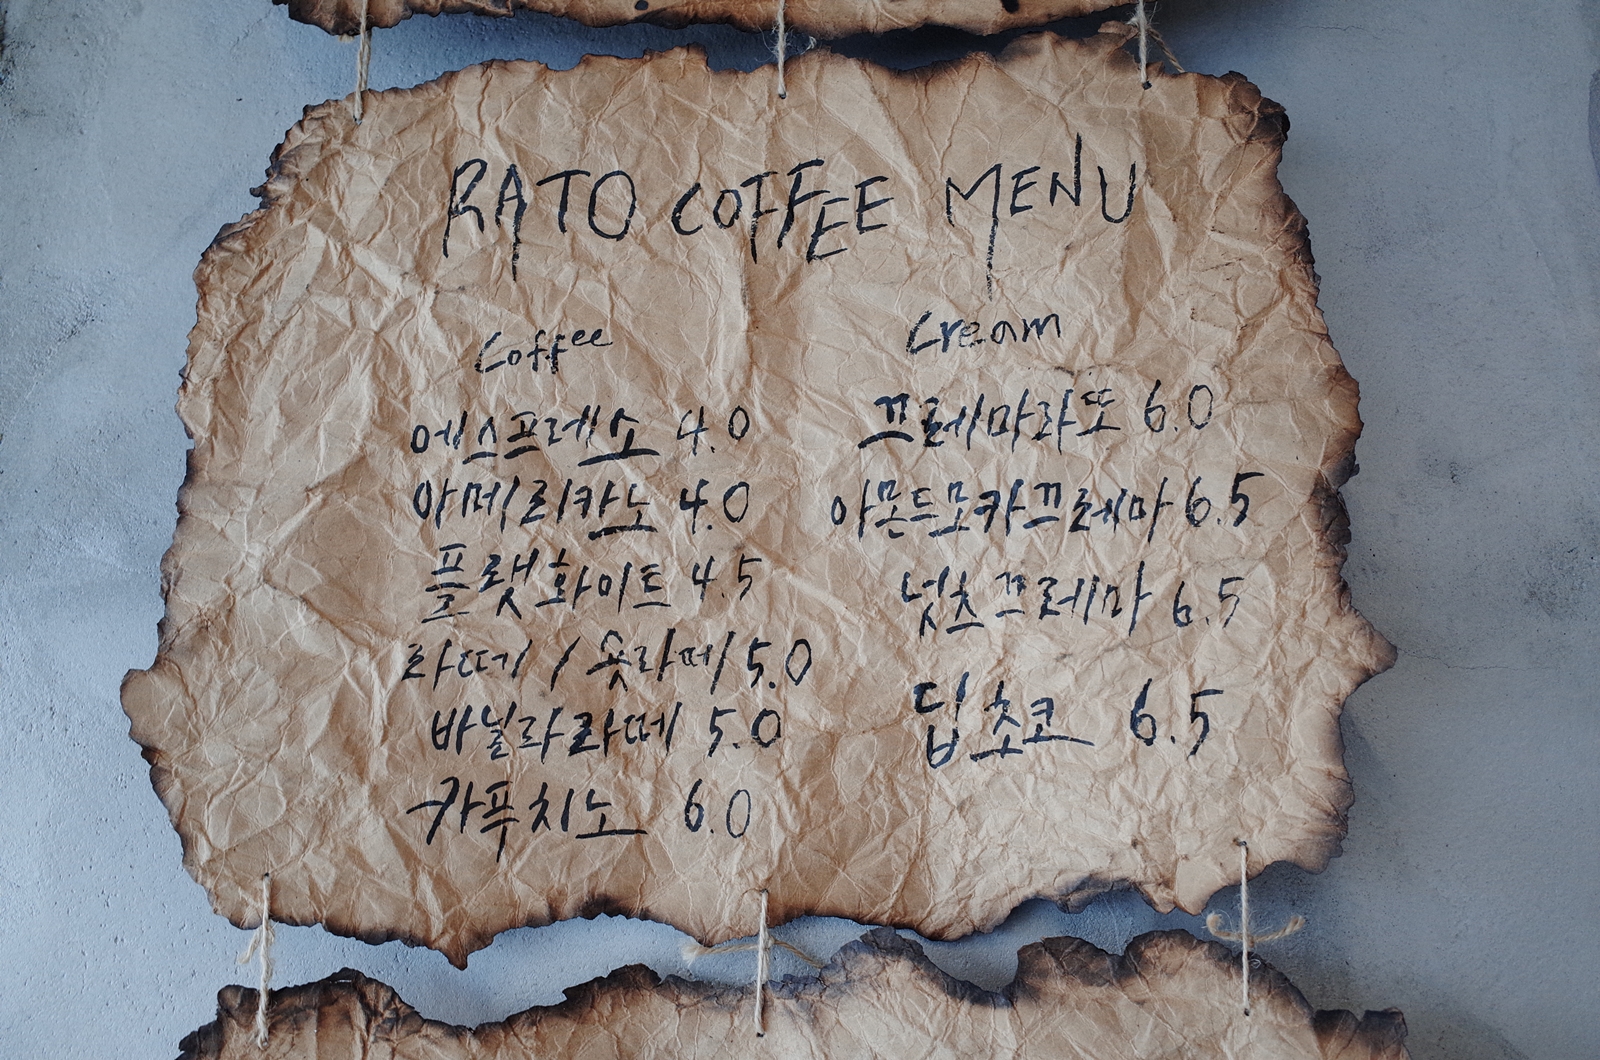 RATO COFFEE MENU
Coffee
에스프레소 4.0
아메리카노 4.0
플랫화이트 4.5
라떼 / 숏라떼 5.0
바닐라라떼 5.0
카푸치노 6.0
Cream
끄레마라또 6.0
아몬드모카끄레마 6.5
넛츠끄레마 6.5
딥초코 6.5